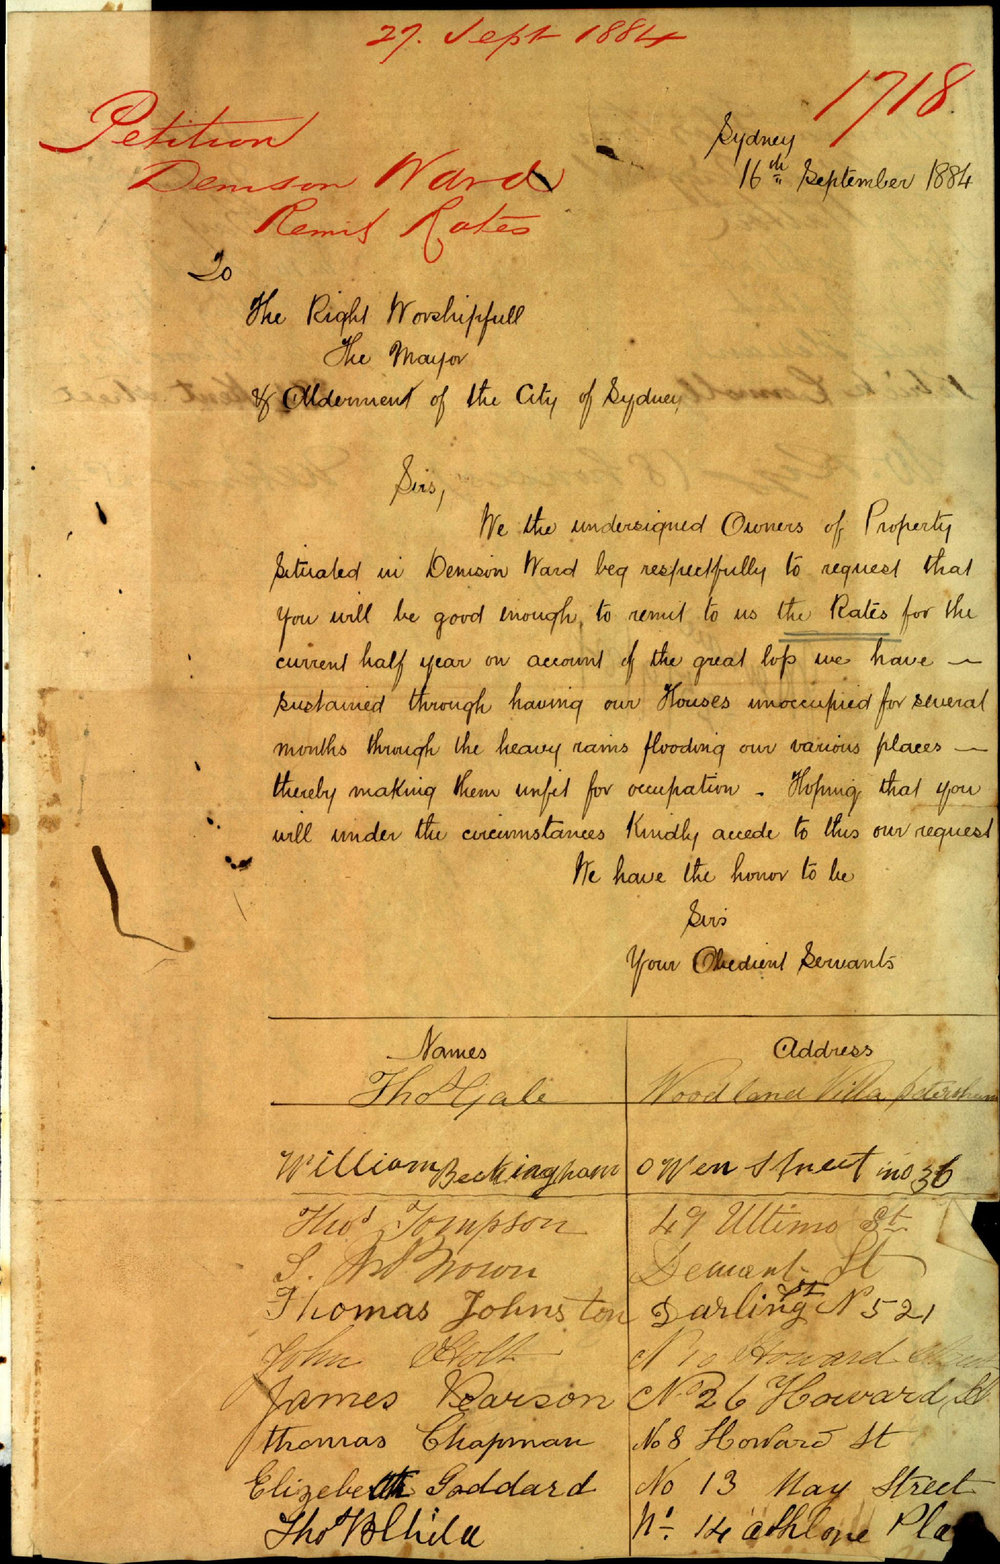 27. Sept 1884
1718.
Petition
Denison Ward
Remit Rates
Sydney
16th September 1884
To
The Right Worshipfull
The Mayor
& Aldermen of the City of Sydney
Sirs,
We the undersigned Owners of Property
Situated in Denison Ward beg respectfully to request that
you will be good enough to remit to us the Rates for the
current half year on account of the great loss we have —
sustained through having our Houses unoccupied for several
months through the heavy rains flooding our various places —
thereby making them unfit for occupation - Hoping that you
will under the circumstances Kindly accede to this our request
We have the honor to be
Sirs
Your Obedient Servants
Names Address
Thos Gale Woodland Villa Petersham
William Beckingham Owen Street no 36
Thos Tompson 49 Ultimo St
Brown St
Thomas Johnston Darling St N 521
John Holt N 10 Howard
James Pearson No 26 Howard St
Thomas Chapman No 8 Howard St
Elizebeth Goddard No 13 May Street
Thos Child No. 14 athlone Pla